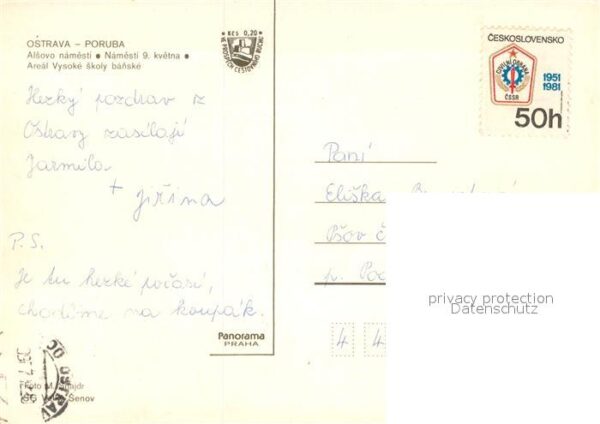 OSTRAVA – PORUBA
Alšovo náměstí • Náměstí 9. května •
Areál Vysoké školy báňské
Kčs 0,20
VE PROSPĚCH CESTOVNÍHO RUCHU
ČESKOSLOVENSKO
CIVILNÍ OBRANA
ČSSR
1951
1981
50h
Hezký pozdrav z
Ostravy zasílají
Jarmila
+ Jiřina
P.S.
Je tu hezké počasí,
chodíme na koupák.
Paní
Eliška
Pšov č
p. Po
4 4
Panorama
PRAHA
Foto M.
Šenov
OSTRAVA
privacy protection
Datenschutz